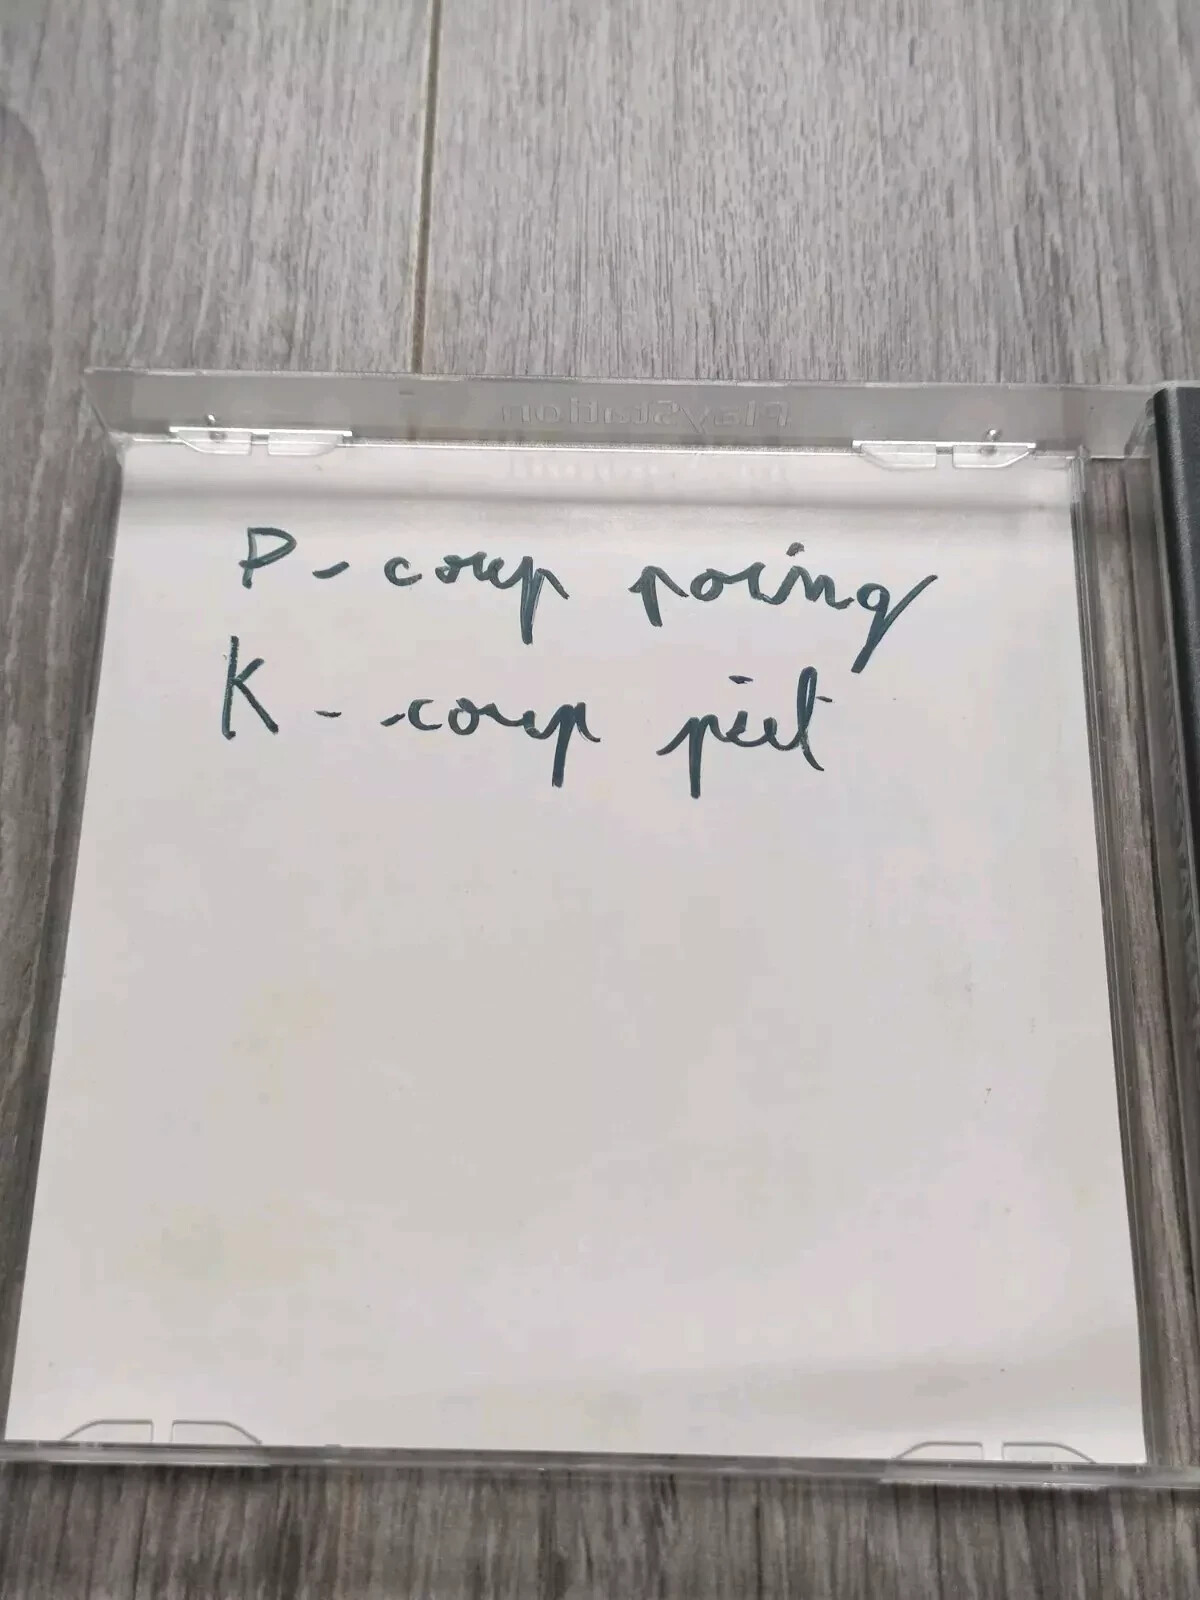 PlayStation
P - coup poing
K - coup piet